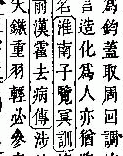 為鈞蓋取周回調
言造化為人亦猶
淮南子覽冥訓
前漢霍去病傳涉
大鑊重羽輕必參